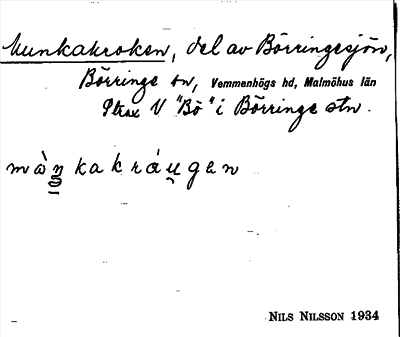 Munkakroken, del av Börringesjön,
Börringe sn, Vemmenhögs hd, Malmöhus län
Strax V "Bö" i Börringe stn.
màŋkakráu̯gen
NILS NILSSON 1934